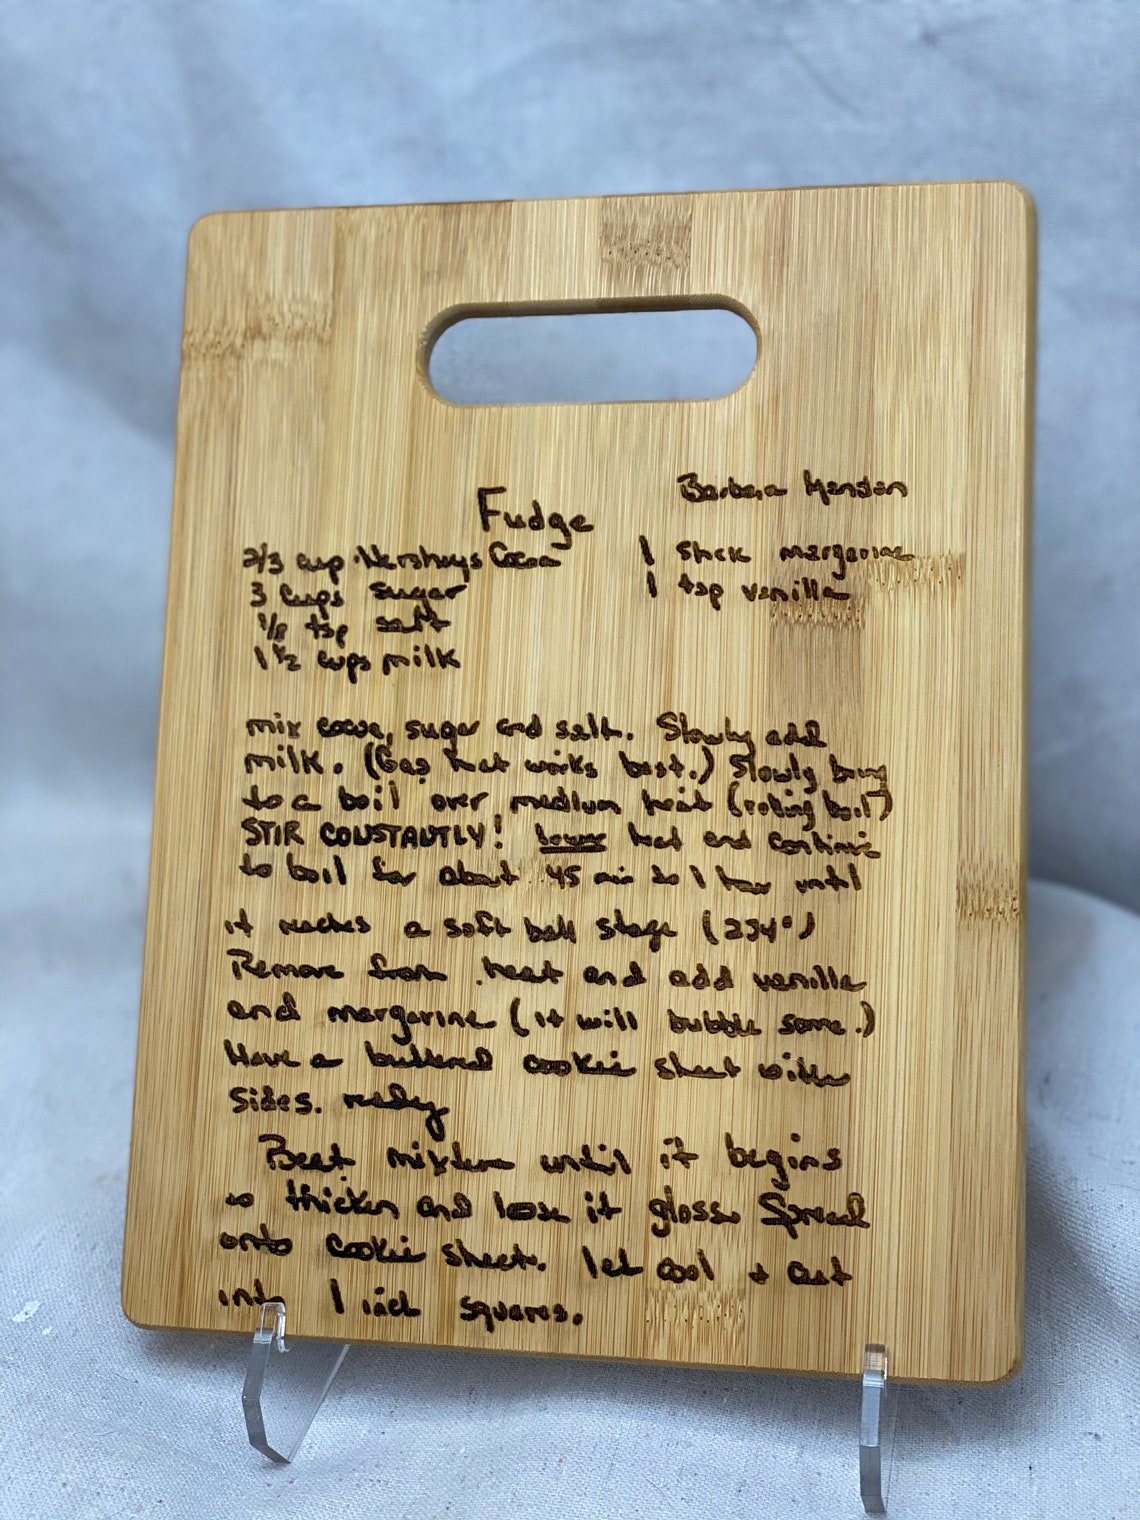 Barbara
Fudge
2/3 cup Hersheys Cocoa
3 cups sugar
1/8 tsp salt
1 1/2 cups milk
1 stick margarine
1 tsp vanilla
mix cocoa, sugar and salt. Slowly add
milk. (Gas heat works best.) Slowly bring
to a boil over medium heat (rolling boil)
STIR CONSTANTLY! Lower heat and continue
to boil for about 45 min to 1 hour until
it reaches a soft ball stage (234°)
Remove from heat and add vanilla
and margarine (it will bubble some.)
Have a buttered cookie sheet with
sides. ready
Beat mixture until it begins
to thicken and lose it gloss. Spread
onto cookie sheet. let cool + cut
into 1 inch squares.